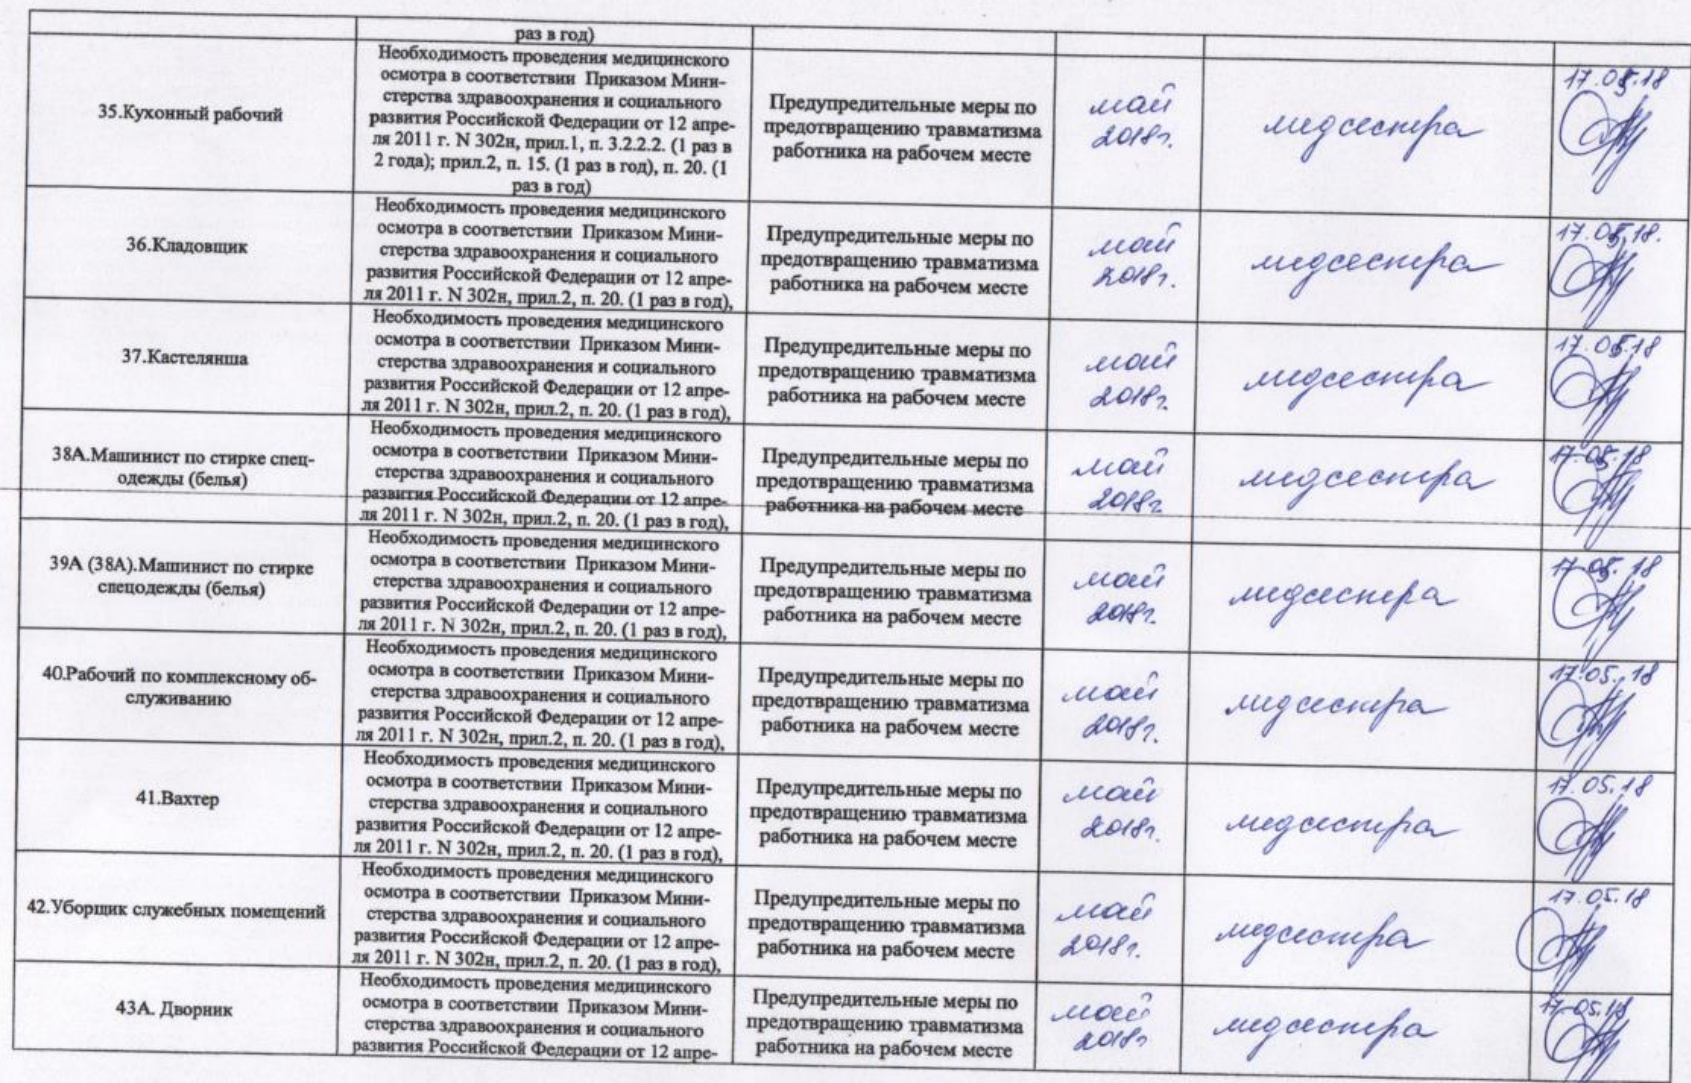 раз в год)
35.Кухонный рабочий
Необходимость проведения медицинского
осмотра в соответствии Приказом Мини-
стерства здравоохранения и социального
развития Российской Федерации от 12 апре-
ля 2011 г. N 302н, прил.1, п. 3.2.2.2. (1 раз в
2 года); прил.2, п. 15. (1 раз в год), п. 20. (1
раз в год)
Предупредительные меры по
предотвращению травматизма
работника на рабочем месте
май
2018г.
медсестра
17.05.18
36.Кладовщик
Необходимость проведения медицинского
осмотра в соответствии Приказом Мини-
стерства здравоохранения и социального
развития Российской Федерации от 12 апре-
ля 2011 г. N 302н, прил.2, п. 20. (1 раз в год),
Предупредительные меры по
предотвращению травматизма
работника на рабочем месте
май
2018г.
медсестра
17.05.18.
37.Кастелянша
Необходимость проведения медицинского
осмотра в соответствии Приказом Мини-
стерства здравоохранения и социального
развития Российской Федерации от 12 апре-
ля 2011 г. N 302н, прил.2, п. 20. (1 раз в год),
Предупредительные меры по
предотвращению травматизма
работника на рабочем месте
май
2018г.
медсестра
17.05.18
38А.Машинист по стирке спец-
одежды (белья)
Необходимость проведения медицинского
осмотра в соответствии Приказом Мини-
стерства здравоохранения и социального
развития Российской Федерации от 12 апре-
ля 2011 г. N 302н, прил.2, п. 20. (1 раз в год),
Предупредительные меры по
предотвращению травматизма
работника на рабочем месте
май
2018г.
медсестра
17.05.18
39А (38А).Машинист по стирке
спецодежды (белья)
Необходимость проведения медицинского
осмотра в соответствии Приказом Мини-
стерства здравоохранения и социального
развития Российской Федерации от 12 апре-
ля 2011 г. N 302н, прил.2, п. 20. (1 раз в год),
Предупредительные меры по
предотвращению травматизма
работника на рабочем месте
май
2018г.
медсестра
17.05.18
40.Рабочий по комплексному об-
служиванию
Необходимость проведения медицинского
осмотра в соответствии Приказом Мини-
стерства здравоохранения и социального
развития Российской Федерации от 12 апре-
ля 2011 г. N 302н, прил.2, п. 20. (1 раз в год),
Предупредительные меры по
предотвращению травматизма
работника на рабочем месте
май
2018г.
медсестра
17.05.18
41.Вахтер
Необходимость проведения медицинского
осмотра в соответствии Приказом Мини-
стерства здравоохранения и социального
развития Российской Федерации от 12 апре-
ля 2011 г. N 302н, прил.2, п. 20. (1 раз в год),
Предупредительные меры по
предотвращению травматизма
работника на рабочем месте
май
2018г.
медсестра
17.05.18
42.Уборщик служебных помещений
Необходимость проведения медицинского
осмотра в соответствии Приказом Мини-
стерства здравоохранения и социального
развития Российской Федерации от 12 апре-
ля 2011 г. N 302н, прил.2, п. 20. (1 раз в год),
Предупредительные меры по
предотвращению травматизма
работника на рабочем месте
май
2018г.
медсестра
17.05.18
43А. Дворник
Необходимость проведения медицинского
осмотра в соответствии Приказом Мини-
стерства здравоохранения и социального
развития Российской Федерации от 12 апре-
Предупредительные меры по
предотвращению травматизма
работника на рабочем месте
май
2018г
медсестра
17.05.18